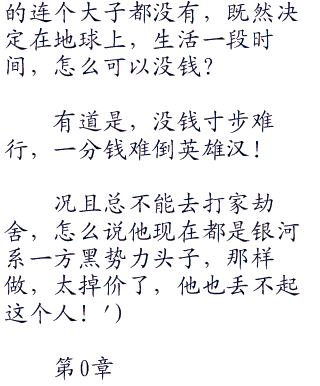 的连个大子都没有，既然决
定在地球上，生活一段时
间，怎么可以没钱？
有道是，没钱寸步难
行，一分钱难倒英雄汉！
况且总不能去打家劫
舍，怎么说他现在都是银河
系一方黑势力头子，那样
做，太掉价了，他也丢不起
这个人！′)
第0章